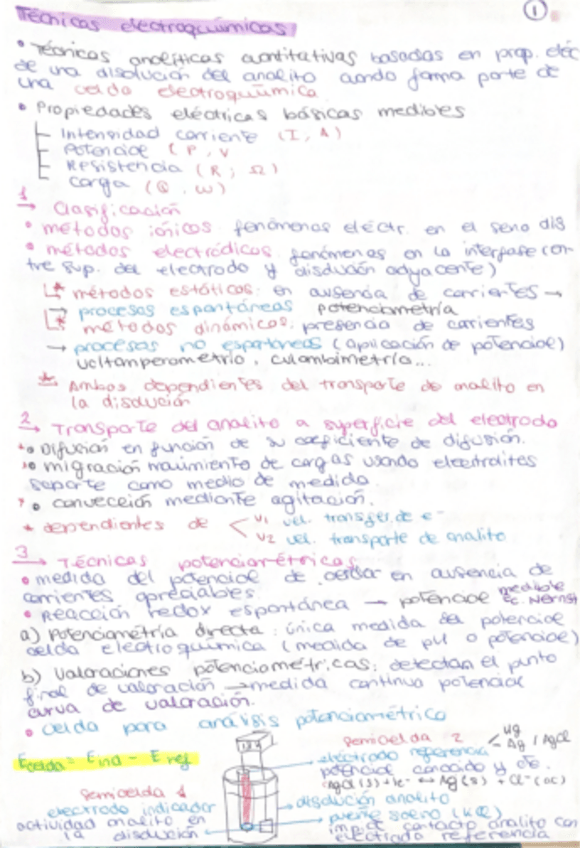 Técnicas electroquímicas
1
• Técnicas analíticas cuantitativas basadas en prop. eléc
de una disolución del analito cuando forma parte de
una celda electroquímica
• Propiedades eléctricas básicas medibles
Intensidad corriente (I, A)
Potencial (P, V
Resistencia (R, Ω)
Carga (Q, ω)
1 → Clasificación
• métodos iónicos fenómenos eléctr. en el seno dis
• métodos electródicos fenómenos en la interfase (en-
tre sup. del electrodo y disolución adyacente)
* métodos estáticos: en ausencia de corrientes →
→ procesos espontáneos potenciometría
* métodos dinámicos: presencia de corrientes
→ procesos no espontáneos (aplicación de potencial)
voltamperometría, culombimetría...
* Ambos dependientes del transporte de analito en
la disolución
2 → Transporte del analito a superficie del electrodo
• Difusión en función de su coeficiente de difusión.
• migración movimiento de cargas usando electrolitos
soporte como medio de medida.
• convección mediante agitación.
* dependientes de < V1 vel. transfer. de e-
V2 vel. transporte de analito
3 → Técnicas potenciométricas
• medida del potencial de celdas en ausencia de
corrientes apreciables
• Reacción redox espontánea → potencial medible
E. Nernst
a) Potenciometría directa: única medida del potencial
celda electroquímica (medida de pH o potencial)
b) Valoraciones potenciométricas: detectan el punto
final de valoración → medida continua potencial
curva de valoración.
• Celda para análisis potenciométrico
Ecelda = Eind - Eref
semicelda 2 < Hg
Ag / AgCl
electrodo referencia
potencial conocido y cte.
AgCl (s) + 1e- ↔ Ag (s) + Cl- (ac)
semicelda 1
electrodo indicador
actividad analito en
la disolución
disolución analito
puente salino (KCl)
impide contacto analito con
electrodo referencia